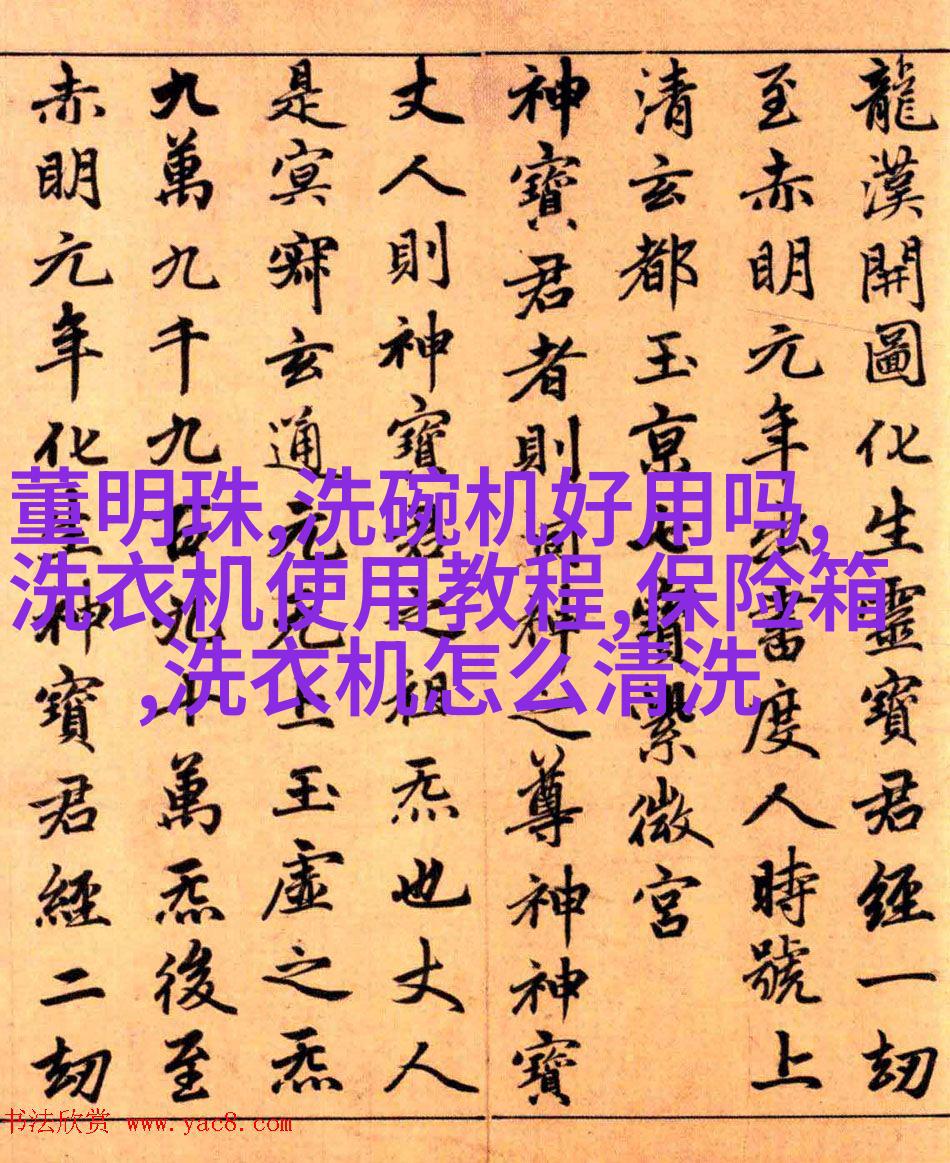 龍漢開圖化生靈寶君經一劫
至赤明元年出書度人時號上
清玄都玉京七寶紫微宮
神寶君者則洞神之尊神神寶
丈人則神寶君之祖炁也丈人
是冥寂玄通元无上玉虛之炁
九萬九千九百九十萬炁後至
赤明元年化生神寶君經二劫
董明珠,洗碗机好用吗,
洗衣机使用教程,保险箱
,洗衣机怎么清洗
书法欣赏 www.yac8.com